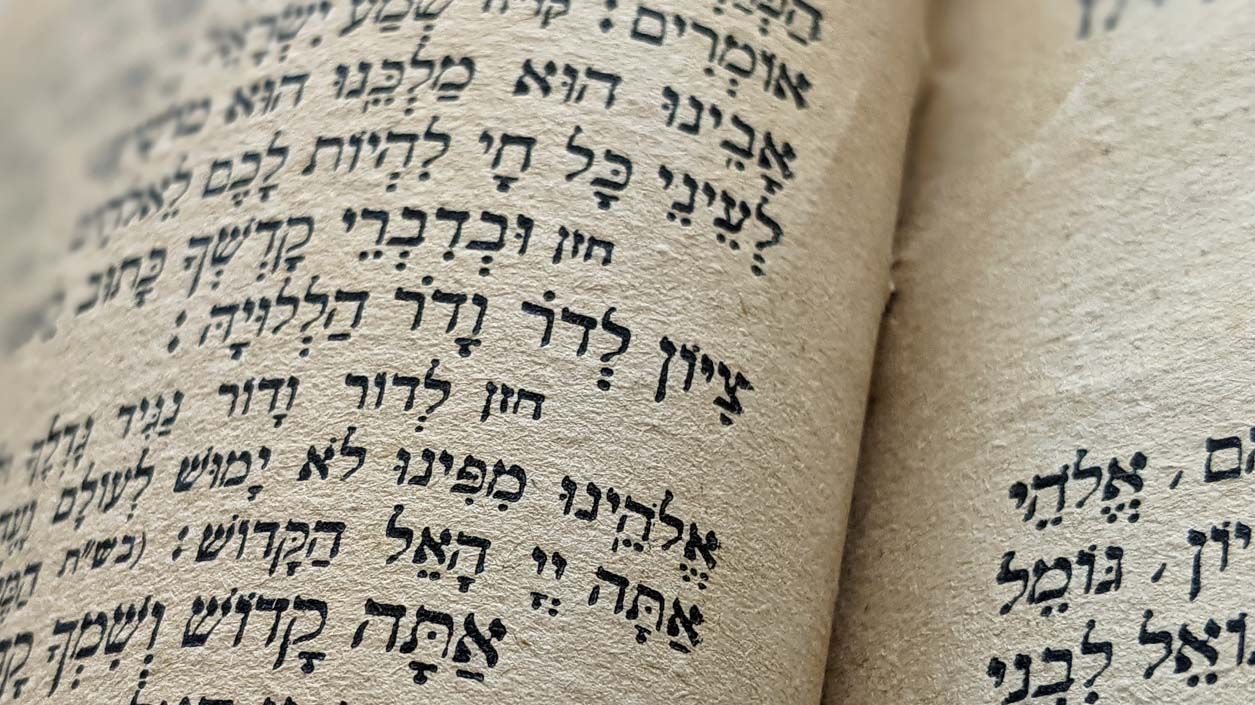 אוֹמְרִים: שְׁמַע יִשְׂרָאֵל
אָבִינוּ הוּא מַלְכֵּנוּ הוּא
לְעֵינֵי כָּל חָי לִהְיוֹת לָכֶם לֵאלֹהִים
חזן וּבְדִבְרֵי קָדְשְׁךָ כָּתוּב
צִיּוֹן לְדֹר וָדֹר הַלְלוּיָהּ:
חזן לְדוֹר וָדוֹר נַגִּיד גָּדְלֶךָ
אֱלֹהֵינוּ מִפִּינוּ לֹא יָמוּשׁ לְעוֹלָם וָעֶד
אַתָּה יְיָ הָאֵל הַקָּדוֹשׁ: (בעש״ת
אַתָּה קָדוֹשׁ וְשִׁמְךָ
אֱלֹהֵי
גּוֹמֵל
לִבְנֵי